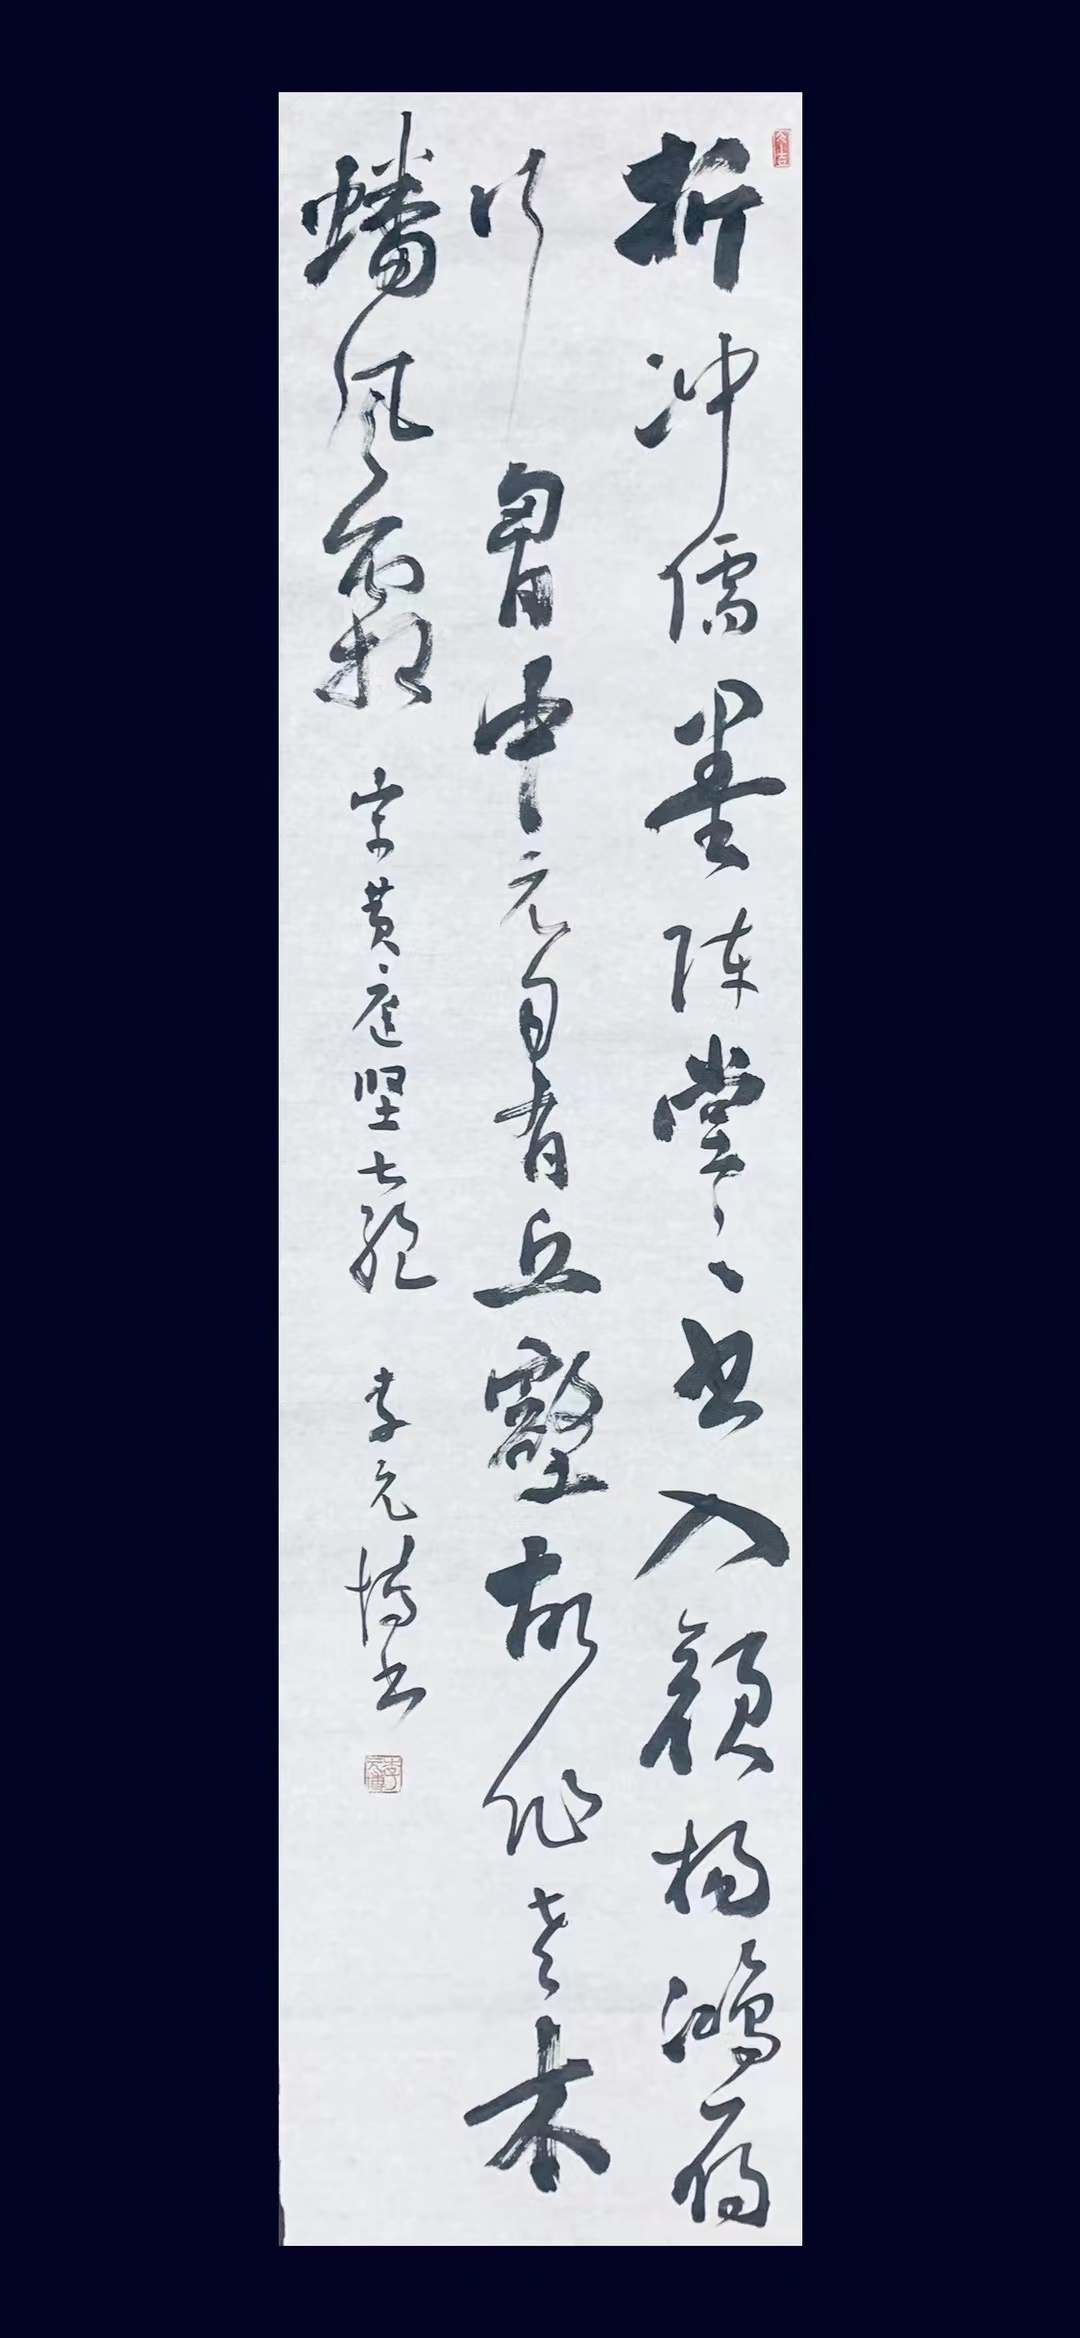 折冲儒墨阵堂々书入颜杨鸿雁
行胷中元自有丘壑故作老木
蟠风霜 宋黄庭坚七绝 李元博书
李元博